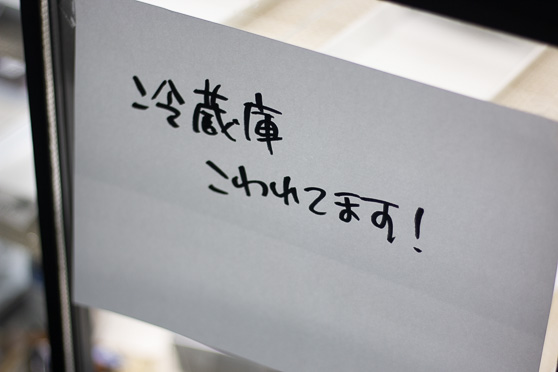 冷蔵庫
こわれてます!